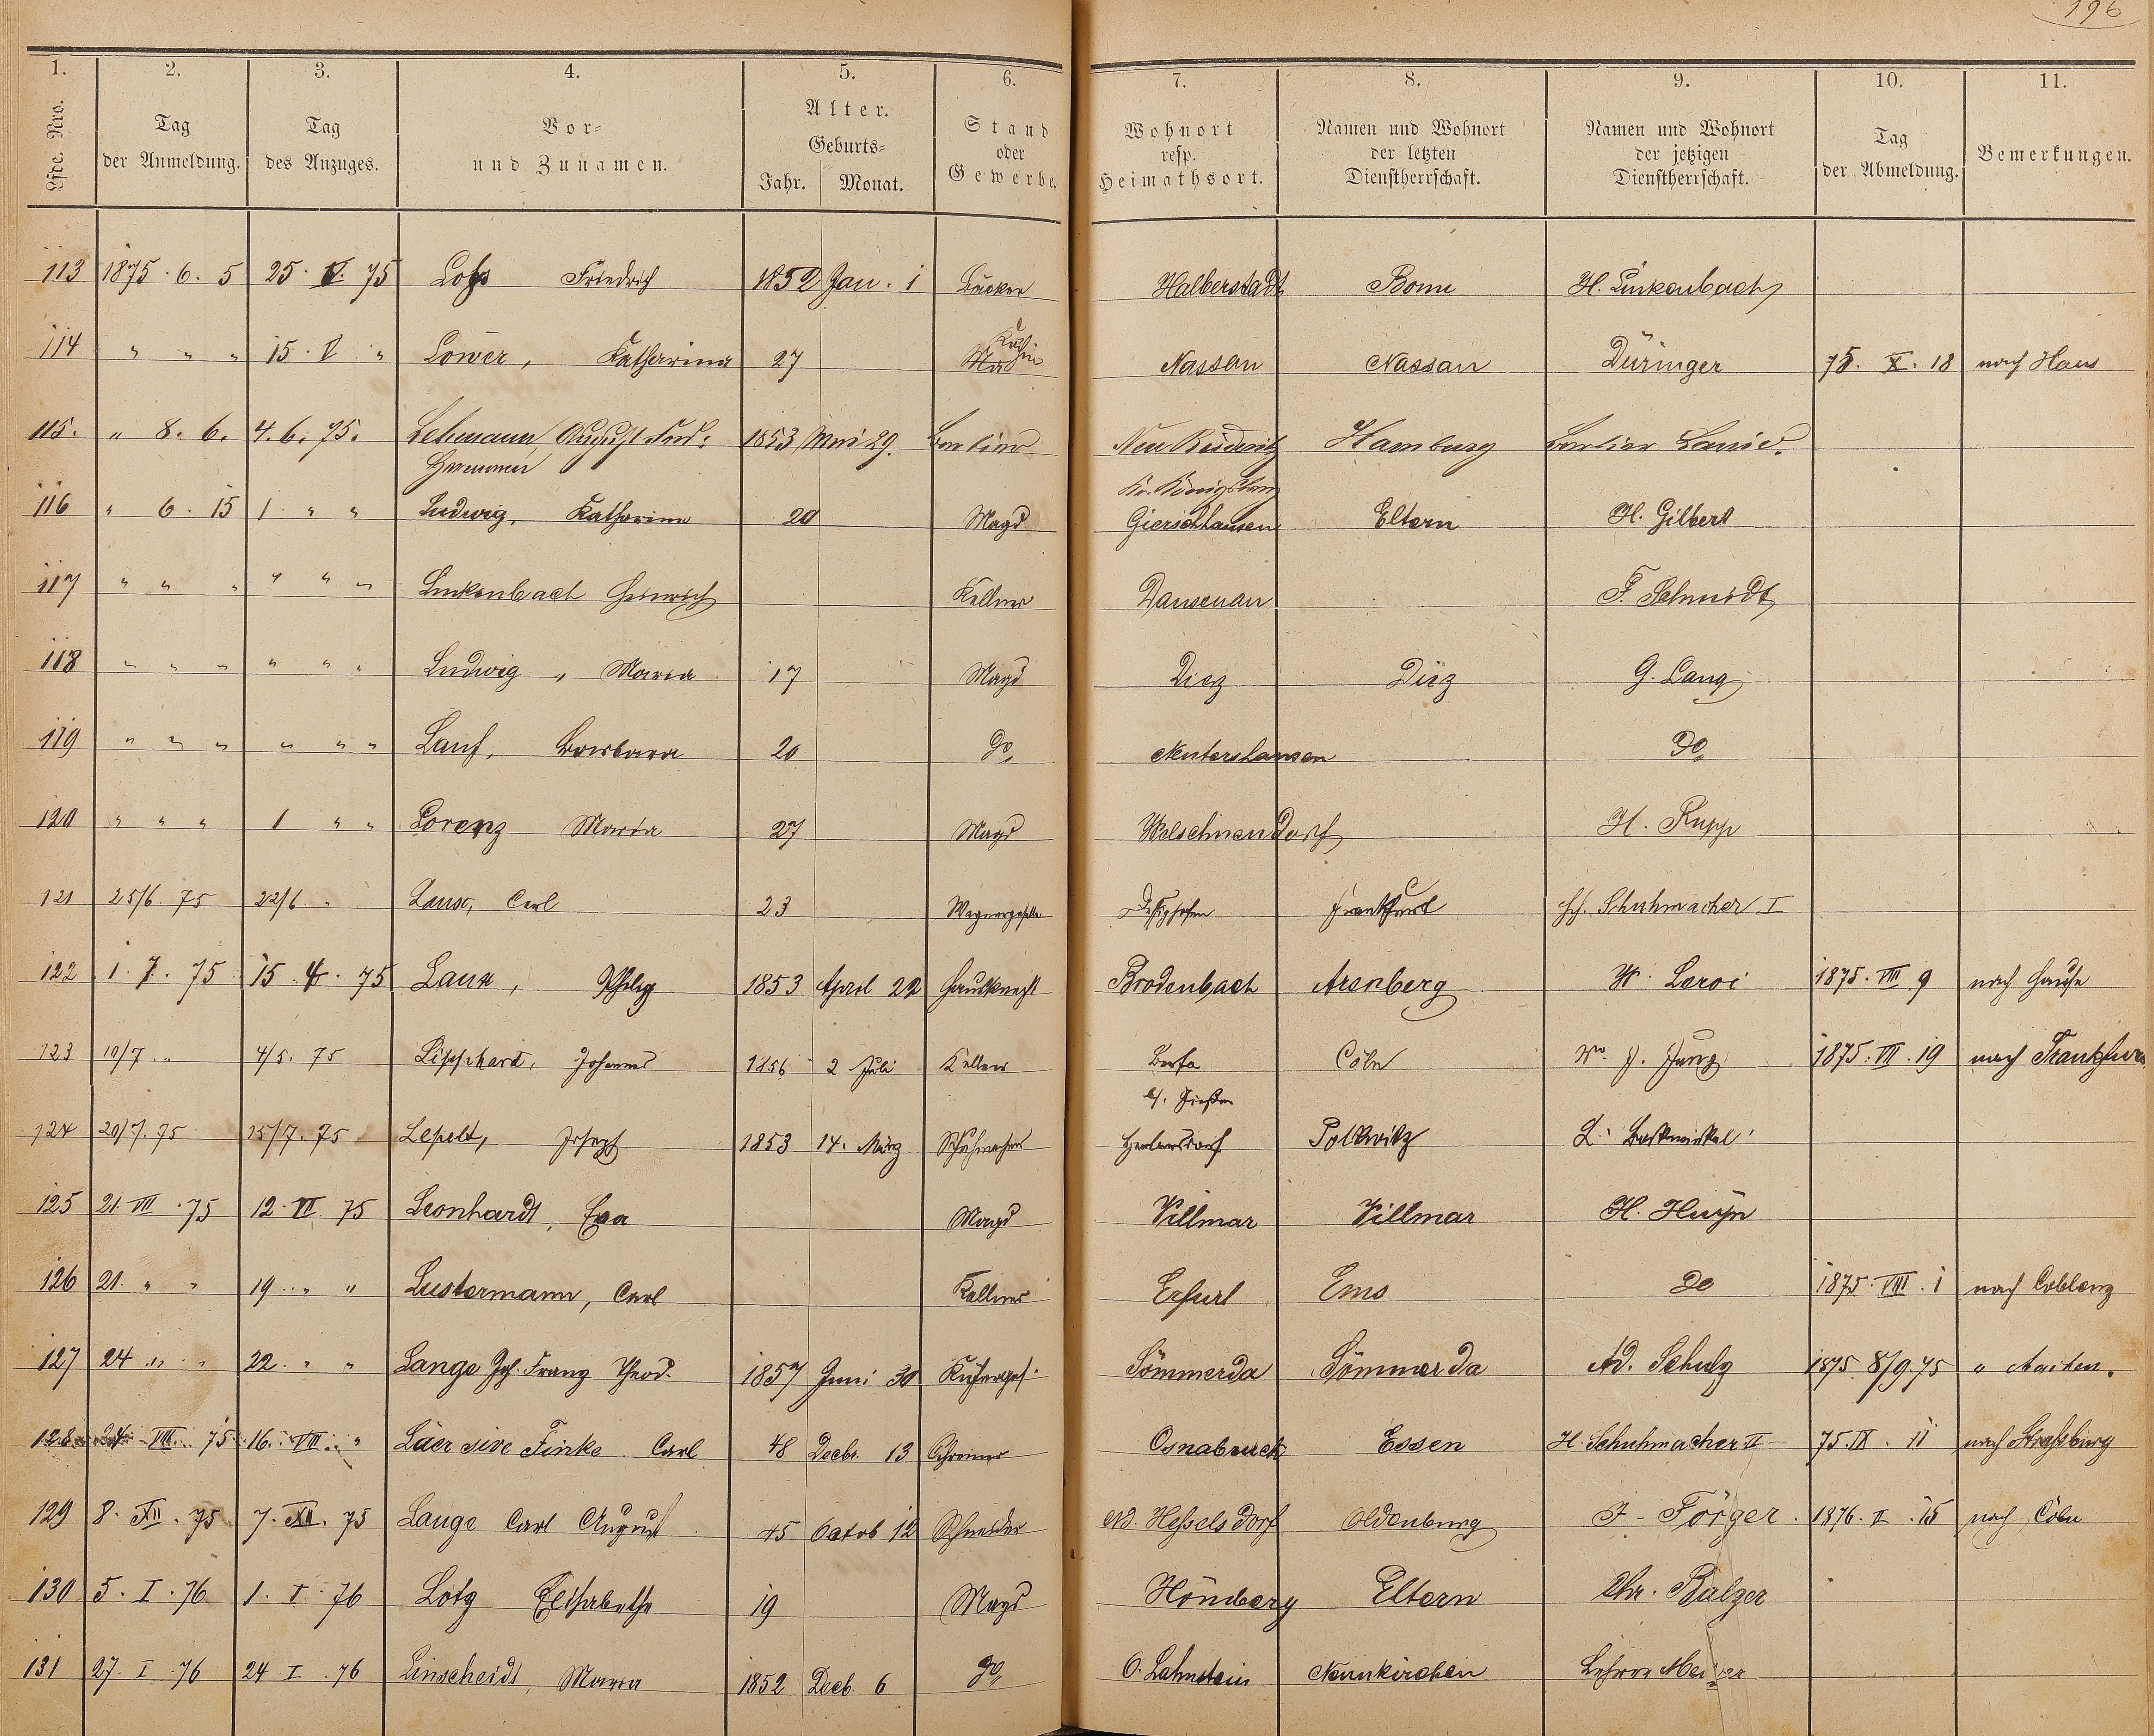 196
1. 2. 3. 4. 5. 6. 7. 8. 9. 10. 11.
Lfde. Nro. Tag der Anmeldung. Tag des Anzuges. Vor= und Zunamen. Alter. Geburts= Jahr. Monat. Stand oder Gewerbe. Wohnort resp. Heimathsort. Namen und Wohnort der letzten Dienstherrschaft. Namen und Wohnort der jetzigen Dienstherrschaft. Tag der Abmeldung. Bemerkungen.
113 1875. 6. 5 25. V. 75 Friedrich 1852 Jan. 1 Bäcker Halberstadt Bonn H. Linkenbach
114 " " " 15. V " Löwer, Katharina 27 Köchin Nassau Nassau Düringer 75. X. 18 nach Haus
115. " 8. 6. 4. 6. 75. Lehmann, August Ferd. 1853 Mai 29. Barbier Neu Hamburg Barbier
Hermann Kr. Königsberg
116 " 6. 15 1 " " Ludwig, Katharina 20 Magd Gierschhausen Eltern H. Gilbert
117 " " " " " " Linkenbach Heinrich Kellner Dausenau F. Schmidt
118 " " " " " " Ludwig, Maria 17 Magd Diez Diez G. Lang
119 " " " " " " Lauf, Barbara 20 do Nentershausen Do
120 " " " 1 " " Lorenz Maria 27 Magd Welschneudorf H. Rupp
121 25/6. 75 22/6 " Carl 23 Wagnergeselle Frankfurt Schuhmacher I
122 1. 7. 75 15. 4. 75 Laux, Philip 1853 April 22 Hausknecht Brodenbach Arenberg W. Leroi 1875. VIII. 9 nach Hause
123 10/7 " 4/5. 75 Lipphard, Johannes 1856 2 Juli Kellner Berfa Cöln 1875. VII. 19 nach Frankfurt
b/. Gießen
124 20/7. 75 15/7. 75 Lepelt, Joseph 1853 14. März Schuhmacher Polkwitz
125 21. VII. 75 12. VI. 75 Leonhardt, Eva Magd Villmar Villmar H. Huyn
126 21. " " 19. " " Lustermann, Carl Kellner Erfurt Ems Do 1875. VIII. 1 nach Coblenz
127 24 " " 22. " " Lange Joh. Franz Theod. 1857 Juni 30 Küferges. Sömmerda Sömmerda Ad. Schulz 1875 8/9. 75 " Aachen.
128 24 VIII. 75 16. VIII. " Läer sive Finke Carl 48 Decbr. 13 Schreiner Osnabruck Essen H. Schuhmacher II 75. IX. 11 nach Straßburg
129 8. XII. 75 7. XII. 75 Lange Carl August 45 Octob 12 Schneider Nd. Hesselsdorf Oldenburg F. Förger 1876. II. 15 nach Cöln
130 5. I. 76 1. I. 76 Lotz Elisabetha 19 Magd Hömberg Eltern Chr. Balzer
131 27. I. 76 24 I. 76 Linscheidt, Maria 1852 Decb. 6 do O. Lahnstein Neunkirchen Lehrer Meister